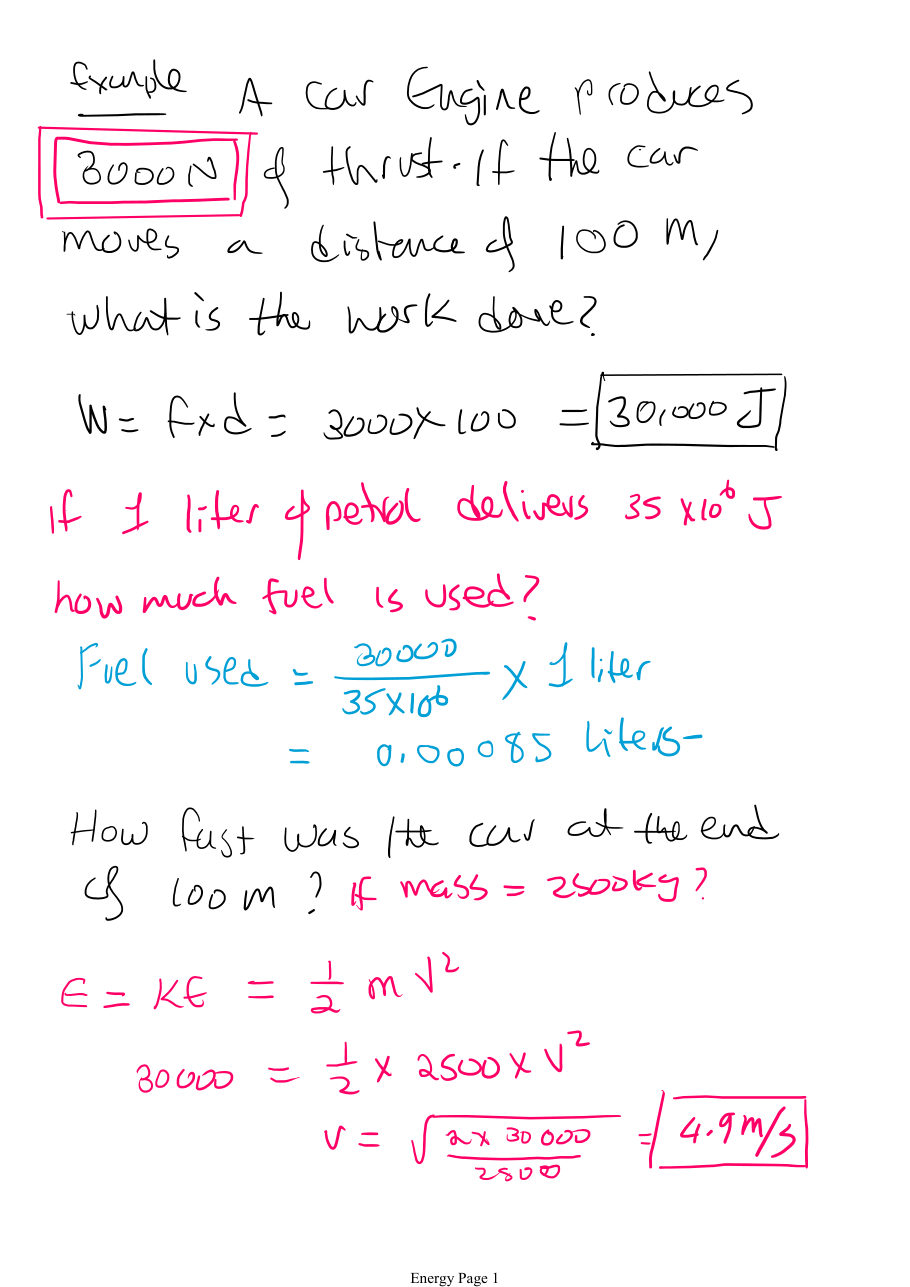 Example A car Engine produces
3000N of thrust. If the car
moves a distance of 100 m,
what is the work done?
W = Fxd = 3000x100 = 30,000 J
If 1 liter of petrol delivers 35 x10⁶ J
how much fuel is used?
Fuel used = 30000 / 35x10⁶ x 1 liter
= 0.00085 Liters-
How fast was the car at the end
of 100m? If mass = 2500kg?
E = KE = 1/2 m V²
30000 = 1/2 x 2500 x V²
V = √(2x 30000 / 2500) = 4.9m/s
Energy Page 1